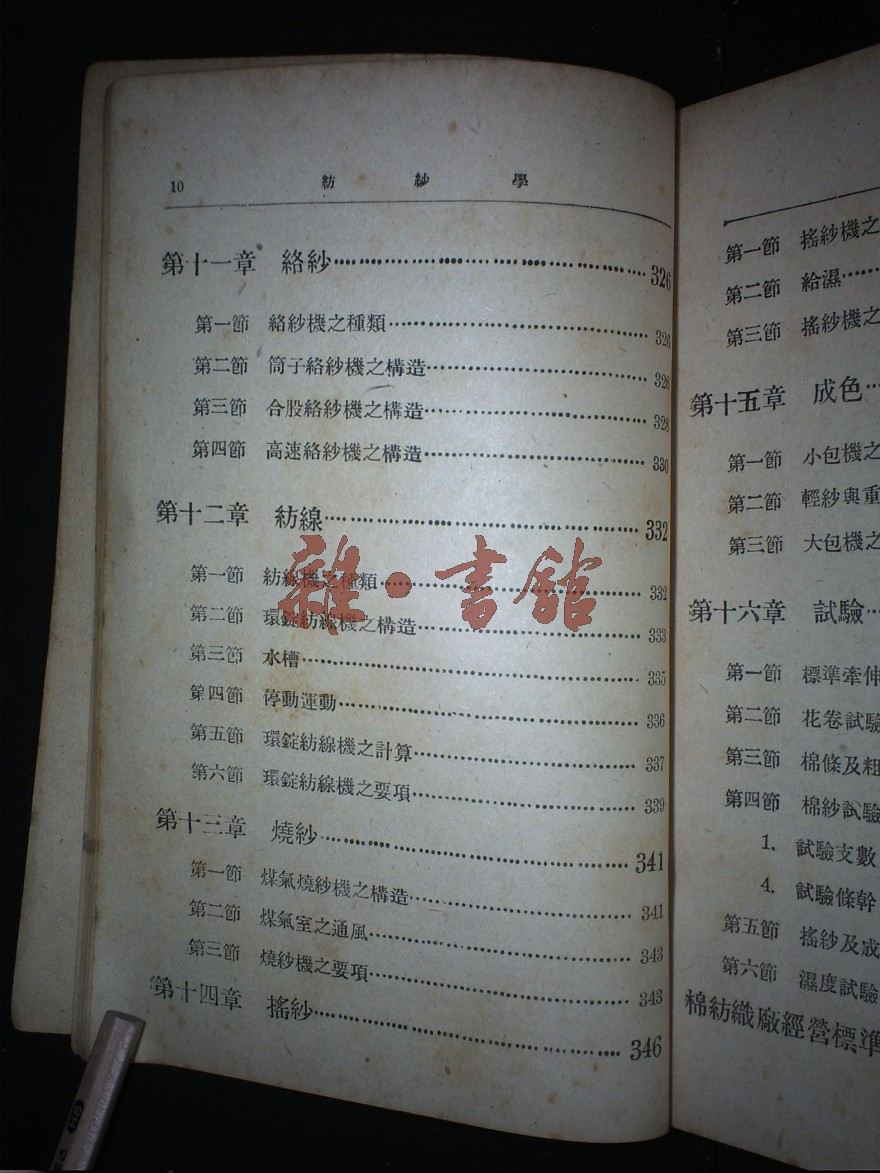 10 紡紗學
第十一章 絡紗 326
第一節 絡紗機之種類 326
第二節 筒子絡紗機之構造 326
第三節 合股絡紗機之構造 328
第四節 高速絡紗機之構造 330
第十二章 紡線 332
第一節 紡線機之種類 332
第二節 環錠紡線機之構造 333
第三節 水槽 335
第四節 停動運動 336
第五節 環錠紡線機之計算 337
第六節 環錠紡線機之要項 339
第十三章 燒紗 341
第一節 煤氣燒紗機之構造 341
第二節 煤氣室之通風 343
第三節 燒紗機之要項 343
第十四章 搖紗 346
雜·書館
HB
第一節 搖紗機之
第二節 給濕
第三節 搖紗機之
第十五章 成色
第一節 小包機之
第二節 輕紗與重
第三節 大包機之
第十六章 試驗
第一節 標準牽伸
第二節 花卷試驗
第三節 棉條及粗
第四節 棉紗試驗
1. 試驗支數
4. 試驗條幹
第五節 搖紗及成
第六節 濕度試驗
棉紡織廠經營標準